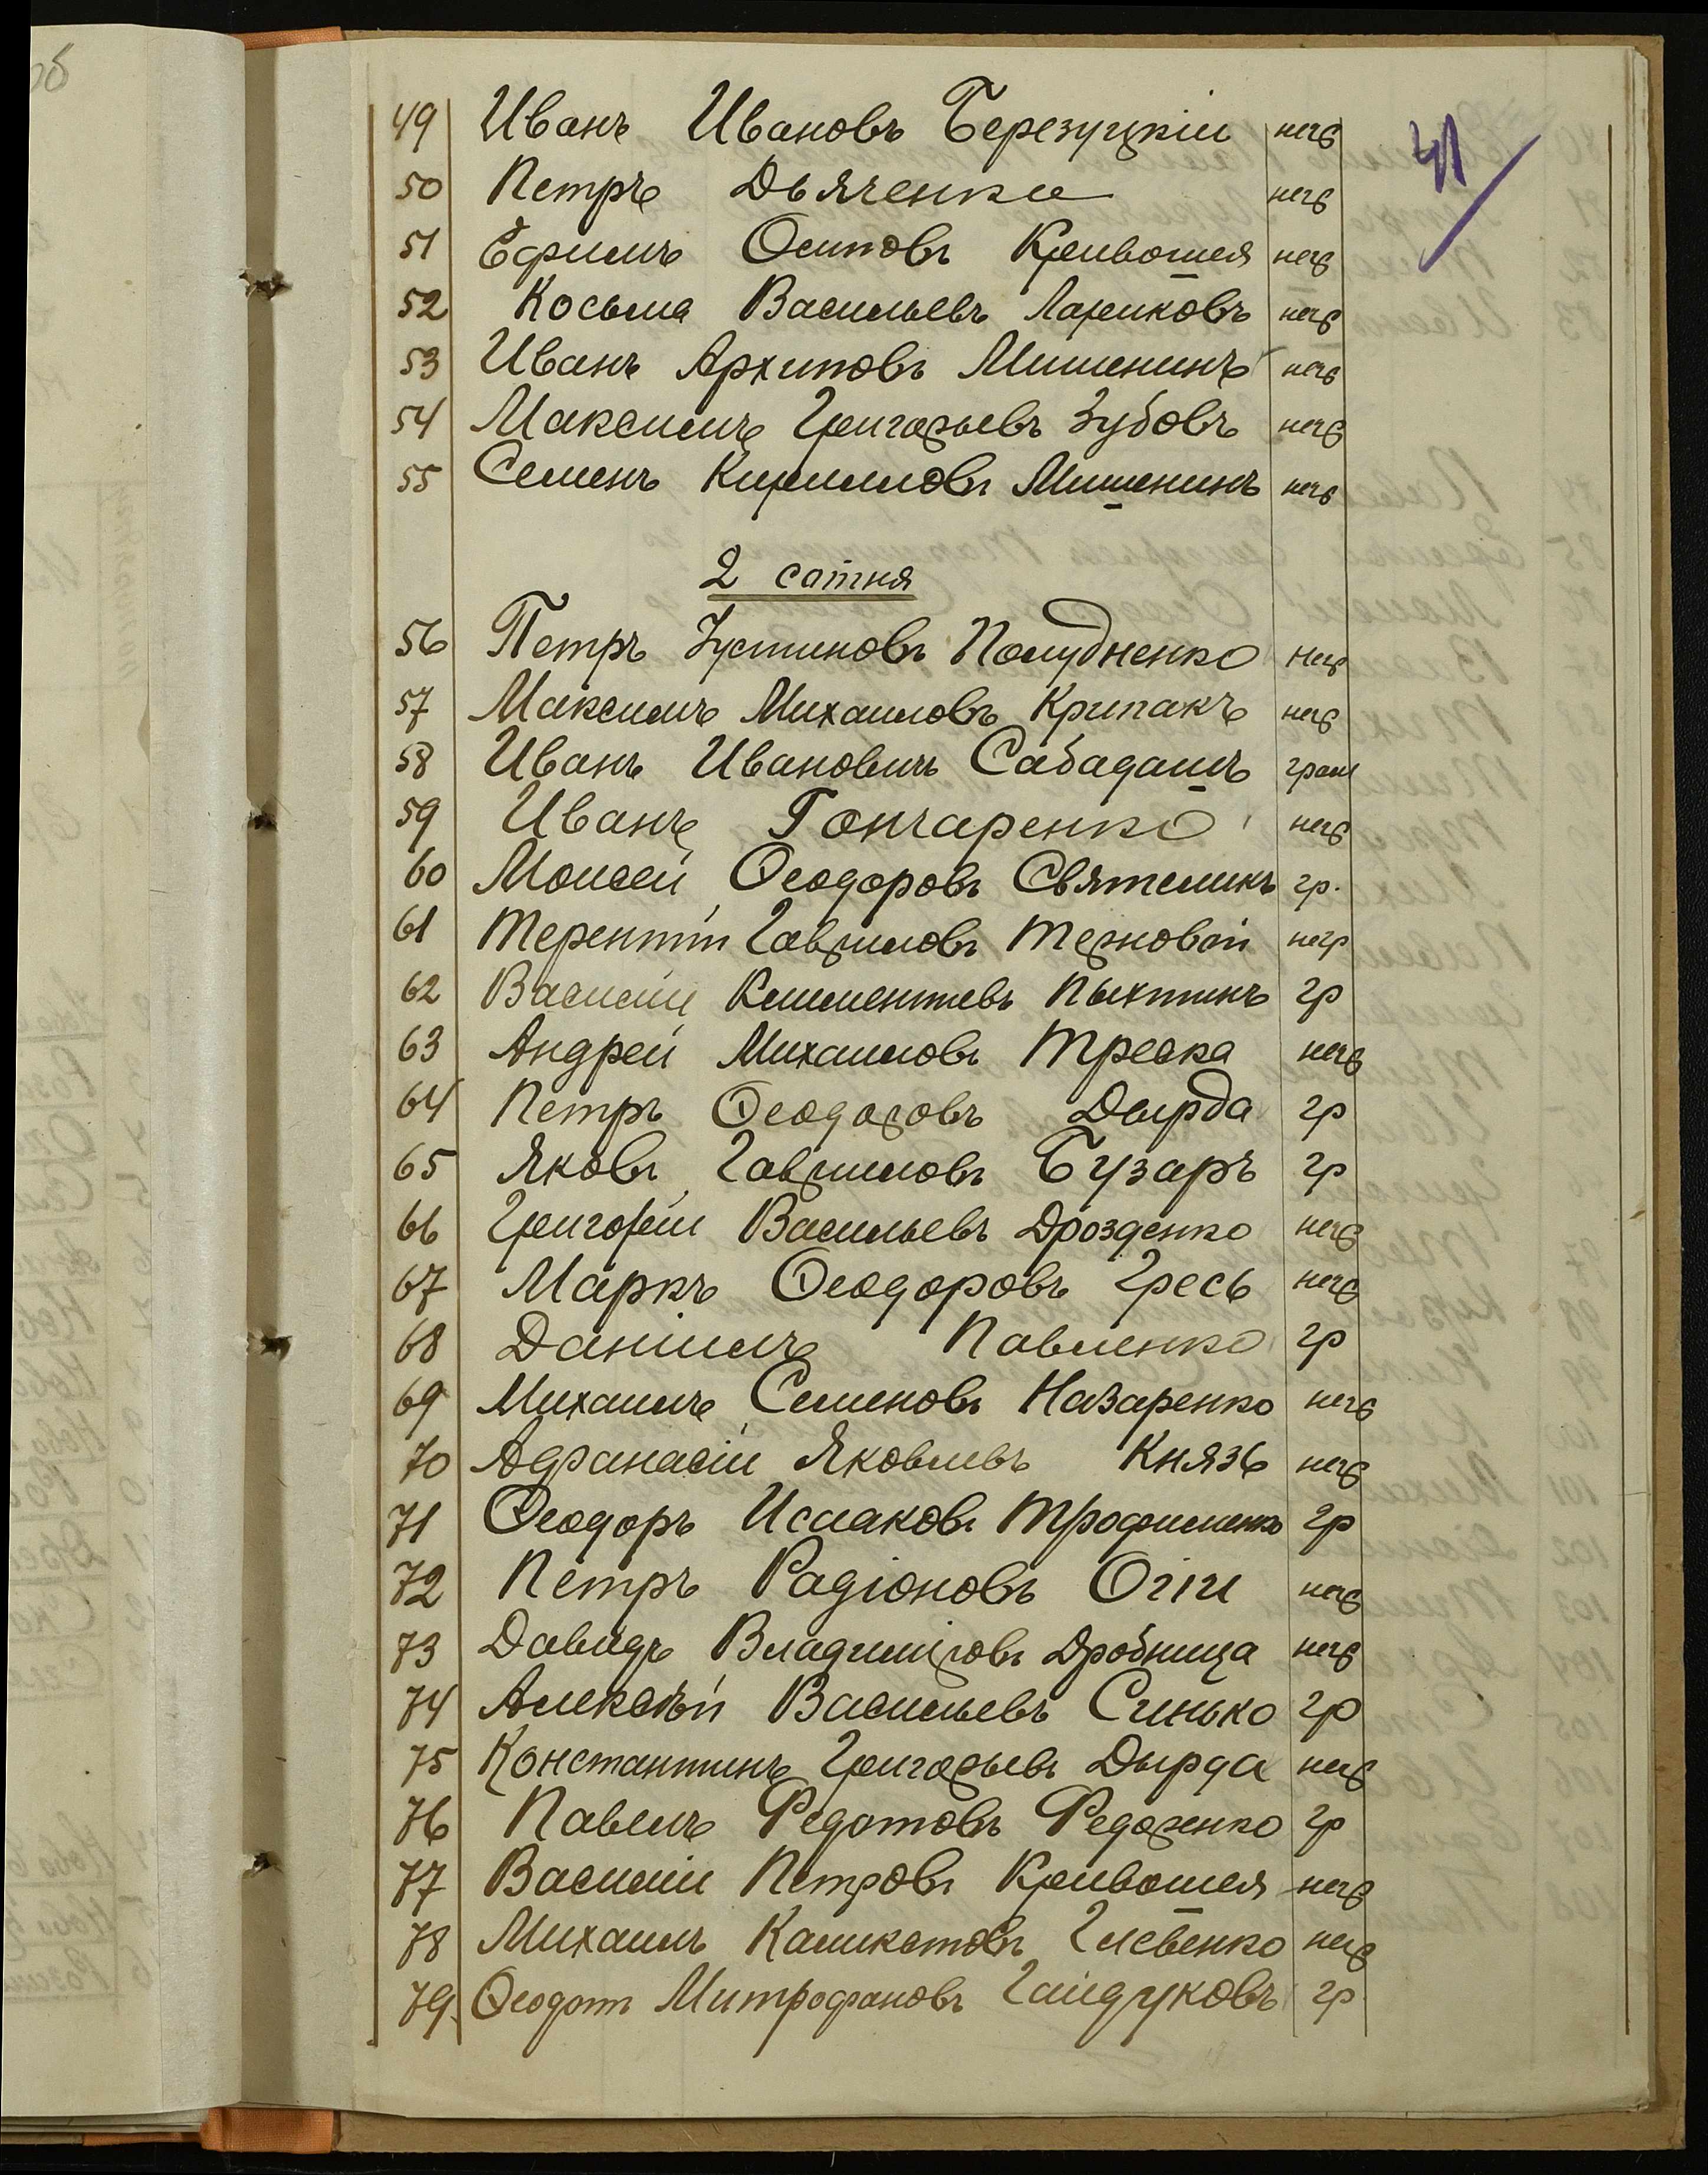 41
49 Иванъ Ивановъ Березуцкій негр
50 Петръ Дьяченко негр
51 Ефимъ Осиповъ Кривошея негр
52 Косьма Васильевъ Лариковъ негр
53 Иванъ Архиповъ Мишенинъ негр
54 Максимъ Григорьевъ Зубовъ негр
55 Семенъ Кирилловъ Мишенинъ негр
2 сотня
56 Петръ Іустиновъ Полудненко негр
57 Максимъ Михаиловъ Крипакъ негр
58 Иванъ Ивановичъ Сабадашъ грам
59 Иванъ Гончаренко негр
60 Моисей Ѳеодоровъ Святеликъ гр.
61 Терентій Гавриловъ Терновой негр
62 Василій Климентіевъ Пыхтинъ гр
63 Андрей Михаиловъ Треска негр
64 Петръ Ѳеодоровъ Дырда гр
65 Яковъ Гавриловъ Бузаръ гр
66 Григорій Васильевъ Дрозденко негр
67 Маркъ Ѳеодоровъ Гресь негр
68 Даніилъ Павленко гр
69 Михаилъ Семеновъ Назаренко негр
70 Афанасій Яковлевъ Князь негр
71 Ѳеодоръ Исааковъ Трофименко гр
72 Петръ Радіоновъ негр
73 Давидъ Владиміровъ Дробница негр
74 Алексѣй Васильевъ Синько гр
75 Константинъ Григорьевъ Дырда негр
76 Павелъ Федотовъ Федоренко гр
77 Василій Петровъ Кривошея негр
78 Михаилъ Каликстовъ Глевенко негр
79. Ѳеодотъ Митрофановъ Гайдуковъ гр